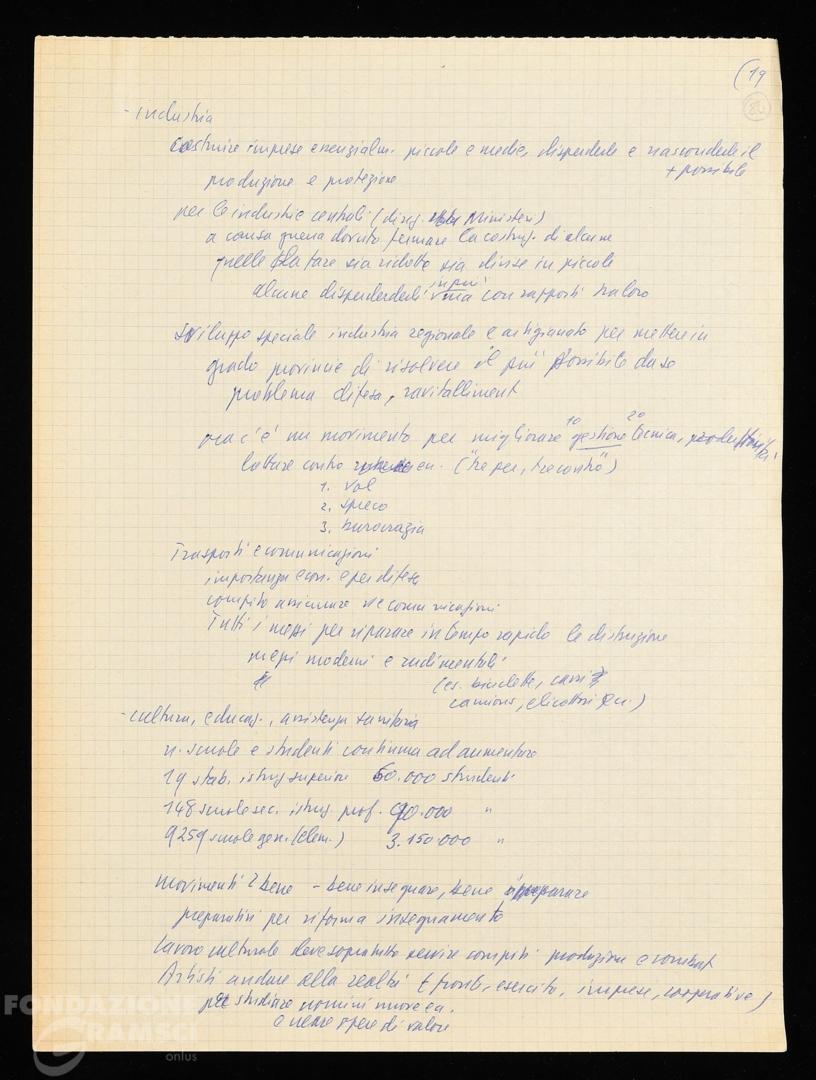 (19
- industria
costruire imprese essenzialm. piccole e medie, disperderle e nasconderle il
+ possibile
produzione e protezione
per le industrie centrali (dirig. Ministeri)
a causa guerra dovuto fermare la costruz. di alcune
quelle da fare sia ridotte sia divise in piccole
in più
alcune disperderderli con rapporti tra loro
sviluppo speciale industria regionale e artigianato per mettere in
grado provincie di risolvere il più possibile da se
problema difesa, ravitalliment
ora c'è un movimento per migliorare gestione tecnica,
1º 2º
lottare contro ("tre per, tre contro")
1. vol
2. spreco
3. burocrazia
Trasporti e comunicazioni
importanza econ. e per difesa
compito assicurare vie comunicazioni
Tutti i mezzi per riparare in tempo rapido le distruzione
mezzi moderni e rudimentali
(es. biciclette, carri,
camions, elicotteri ecc.)
- cultura, educaz., assistenza sanitaria
n. scuole e studenti continua ad aumentare
19 stab. istruz superiore 60.000 studenti
148 scuole sec. istruz. prof. 90.000 "
9259 scuole gen. (elem.) 3.150.000 "
movimenti 2 bene - bene insegnare, bene imparare
preparativi per riforma insegnamento
lavoro culturale deve sopratutto servire compiti produzione e combat
Artisti andare alla realtà (fronte, esercito, imprese, cooperative)
per studiare uomini nuovi ecc.
e creare opere di valore
FONDAZIONE
GRAMSCI
onlus